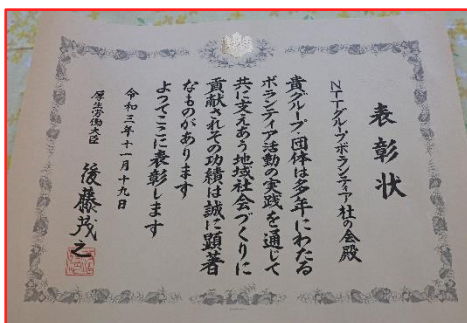 表彰状
NTTグループボランティア社の会殿
貴グループ団体は多年にわたる
ボランティア活動の実践を通じて
共に支えあう地域社会づくりに
貢献されその功績は誠に顕著
なものがあります
よってここに表彰します
令和三年十一月十九日
厚生労働大臣
後藤茂之